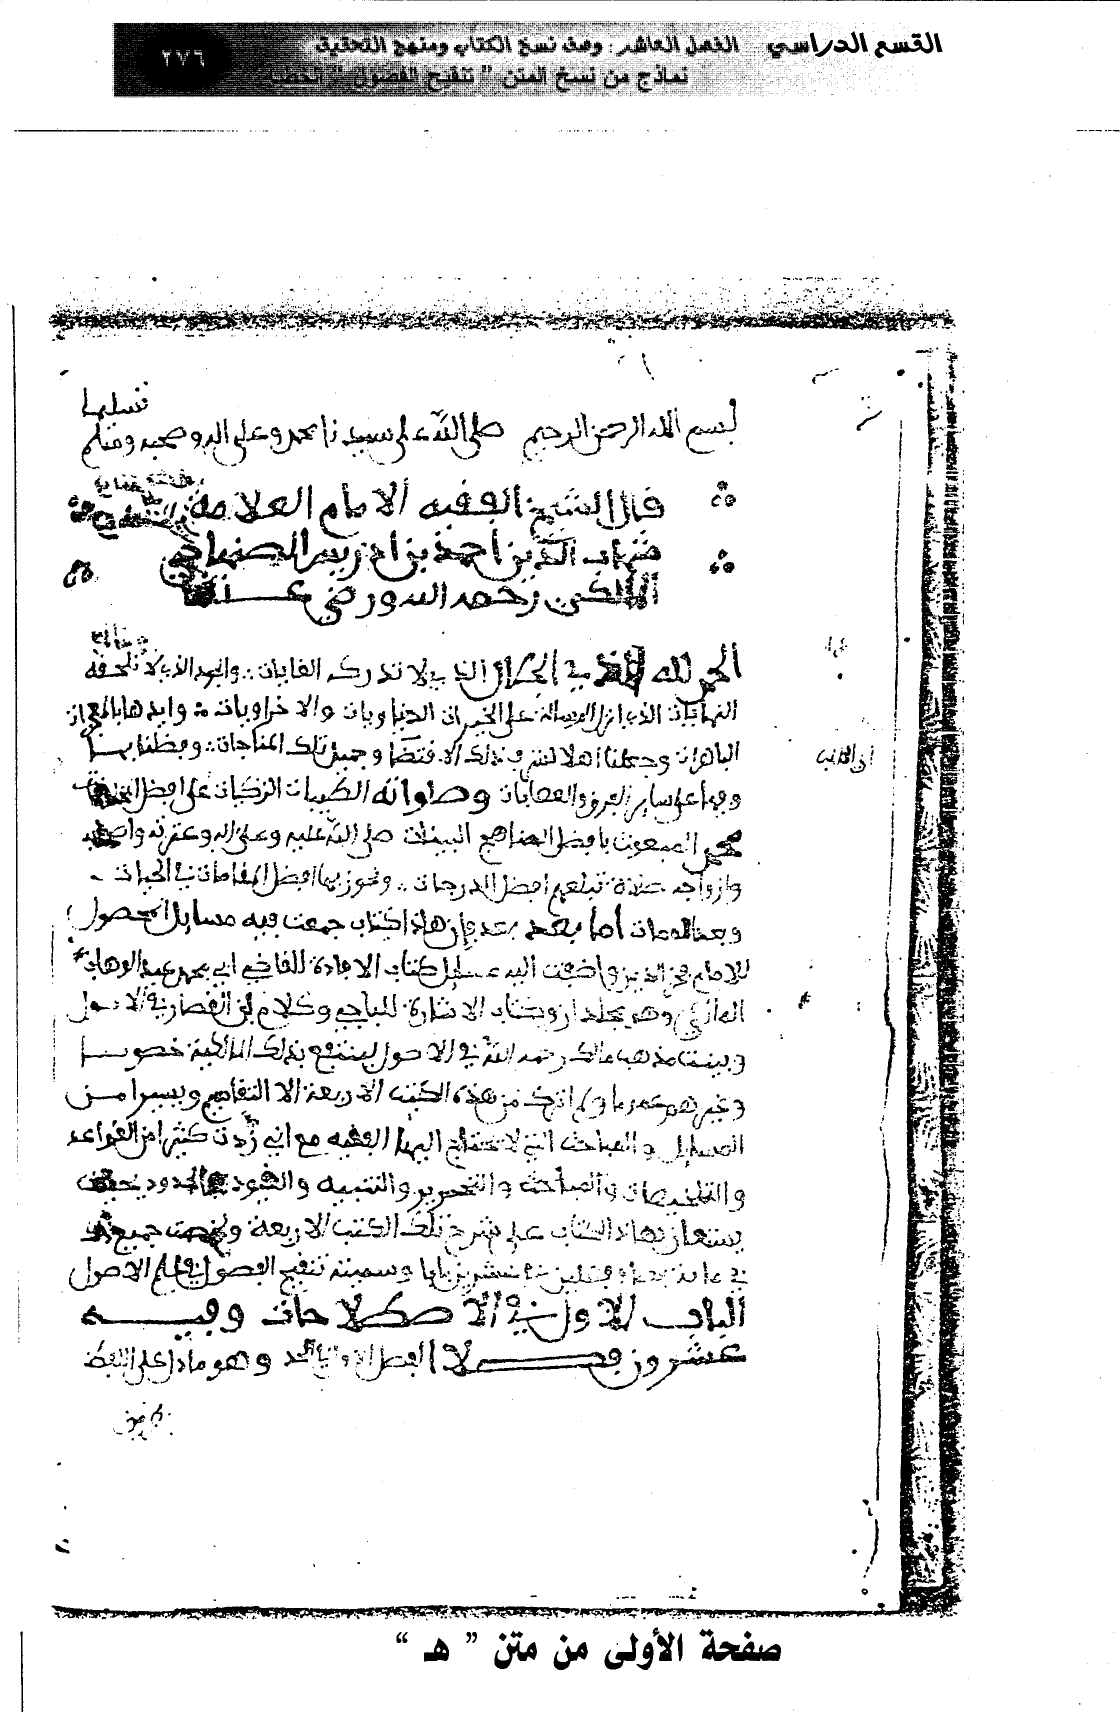 القسم الدراسي الفصل العاشر : وصف نسخ الكتاب ومنهج التحقيق
نماذج من نسخ المتن " تنقيح الفصول " الخطية
٢٧٦
تسليما
بسم الله الرحمن الرحيم صلى الله على سيدنا محمد وعلى اله وصحبه وسلم
قال الشيخ الفقيه الامام العلامة
شهاب الدين احمد بن ادريس الصنهاجي
المالكي رحمه الله ورضي عنه
الحمد لله ذي الجلال الذي لا تدركه الغايات والمجد الذي لا تلحقه
النهايات الذي انزل الرسالة على الخيرات الدنياويات والاخراويات وايدها بالمعجزات
الباهرات وجعلنا اهلا لشرف ذلك الاقتضا وجميل تلك المناجات وفضلنا بها
وفيها على ساير الفرق والعصابات وصلواته الطيبات الزكيات على افضل
محمد المبعوث بافضل المناهج البينات صلى الله عليه وعلى اله وعترته واصحابه
وازواجه صلاة تبلغهم افضل الدرجات ونحوز بها افضل المقامات في الحيات
وبعد الممات اما بعد فإن هاذا كتاب جمعت فيه مسايل المحصول
للامام فخر الدين واضفت اليه مسايل كتاب الافادة للقاضي ابي محمد عبد الوهاب
المالكي وهو مجلدان وكتاب الاشارة للباجي وكلام ابن القصار في الاصول
وبينت مذهب مالك رحمه الله في الاصول لينتفع بذلك المالكية خصوصا
وغيرهم عموما ولم اترك من هذه الكتب الاربعة الا التقاسيم ويسيرا من
المسايل والمباحث التي لا يحتاج اليها الفقيه مع اني زدت كثيرا من القواعد
والتلخيصات والمباحث والتحرير والتنبيه والقيود الحدود بحيث
يستعان بهاذا الكتاب على شرح تلك الكتب الاربعة ولخصت جميع ذلك
في ماية فصل وفصلين في عشرين بابا وسميته تنقيح الفصول في علم الاصول
الباب الاول في الاصطلاحات وفيه
عشرون فصلا الفصل الاول في الحد وهو ما دل على اللفظ
صفحة الأولى من متن " هـ "